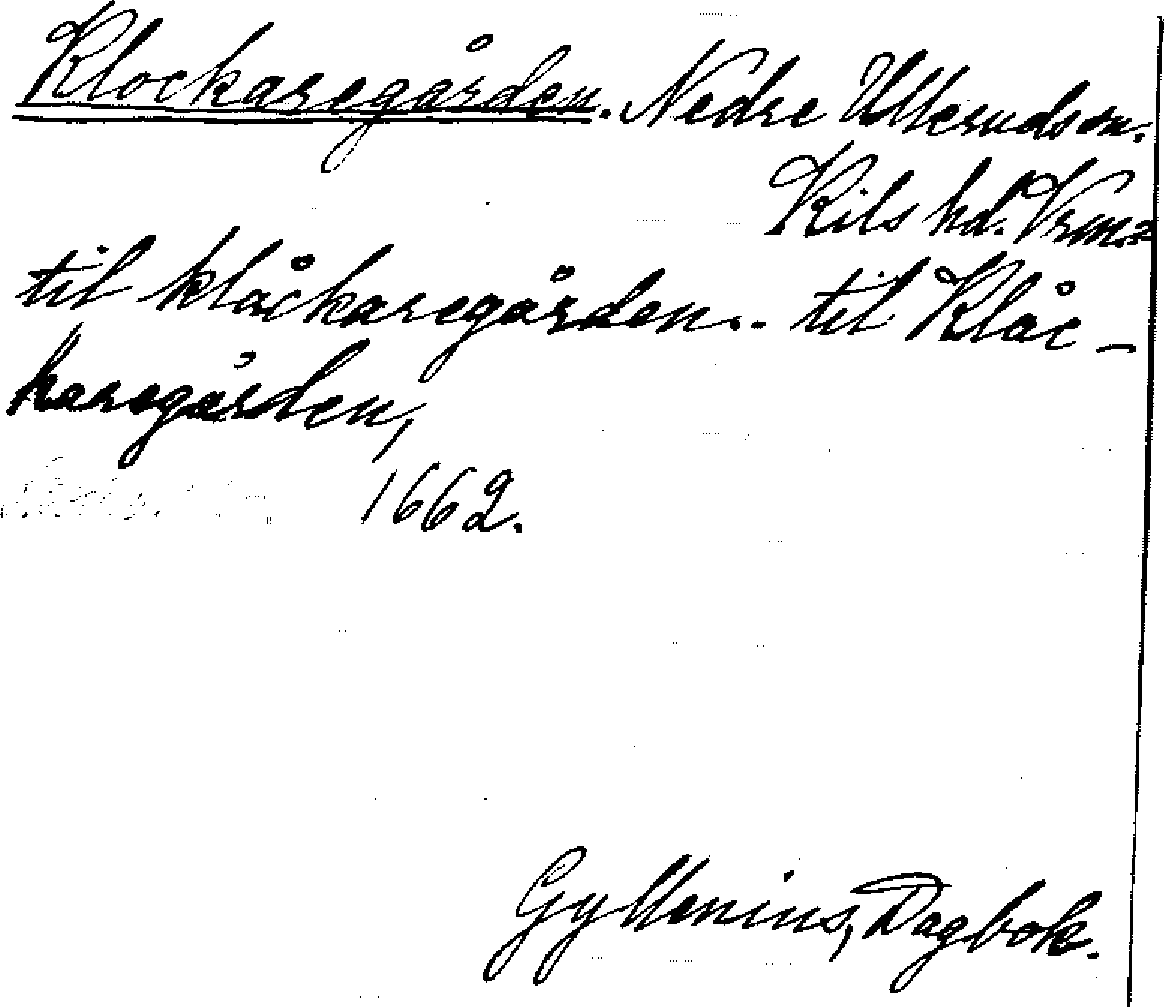 Klockaregården. Nedre Ulleruds sn.
Kils hd. Vrm.
til klåckaregården.. til Klåc-
karegården,
1662.
Gyllenius, Dagbok.